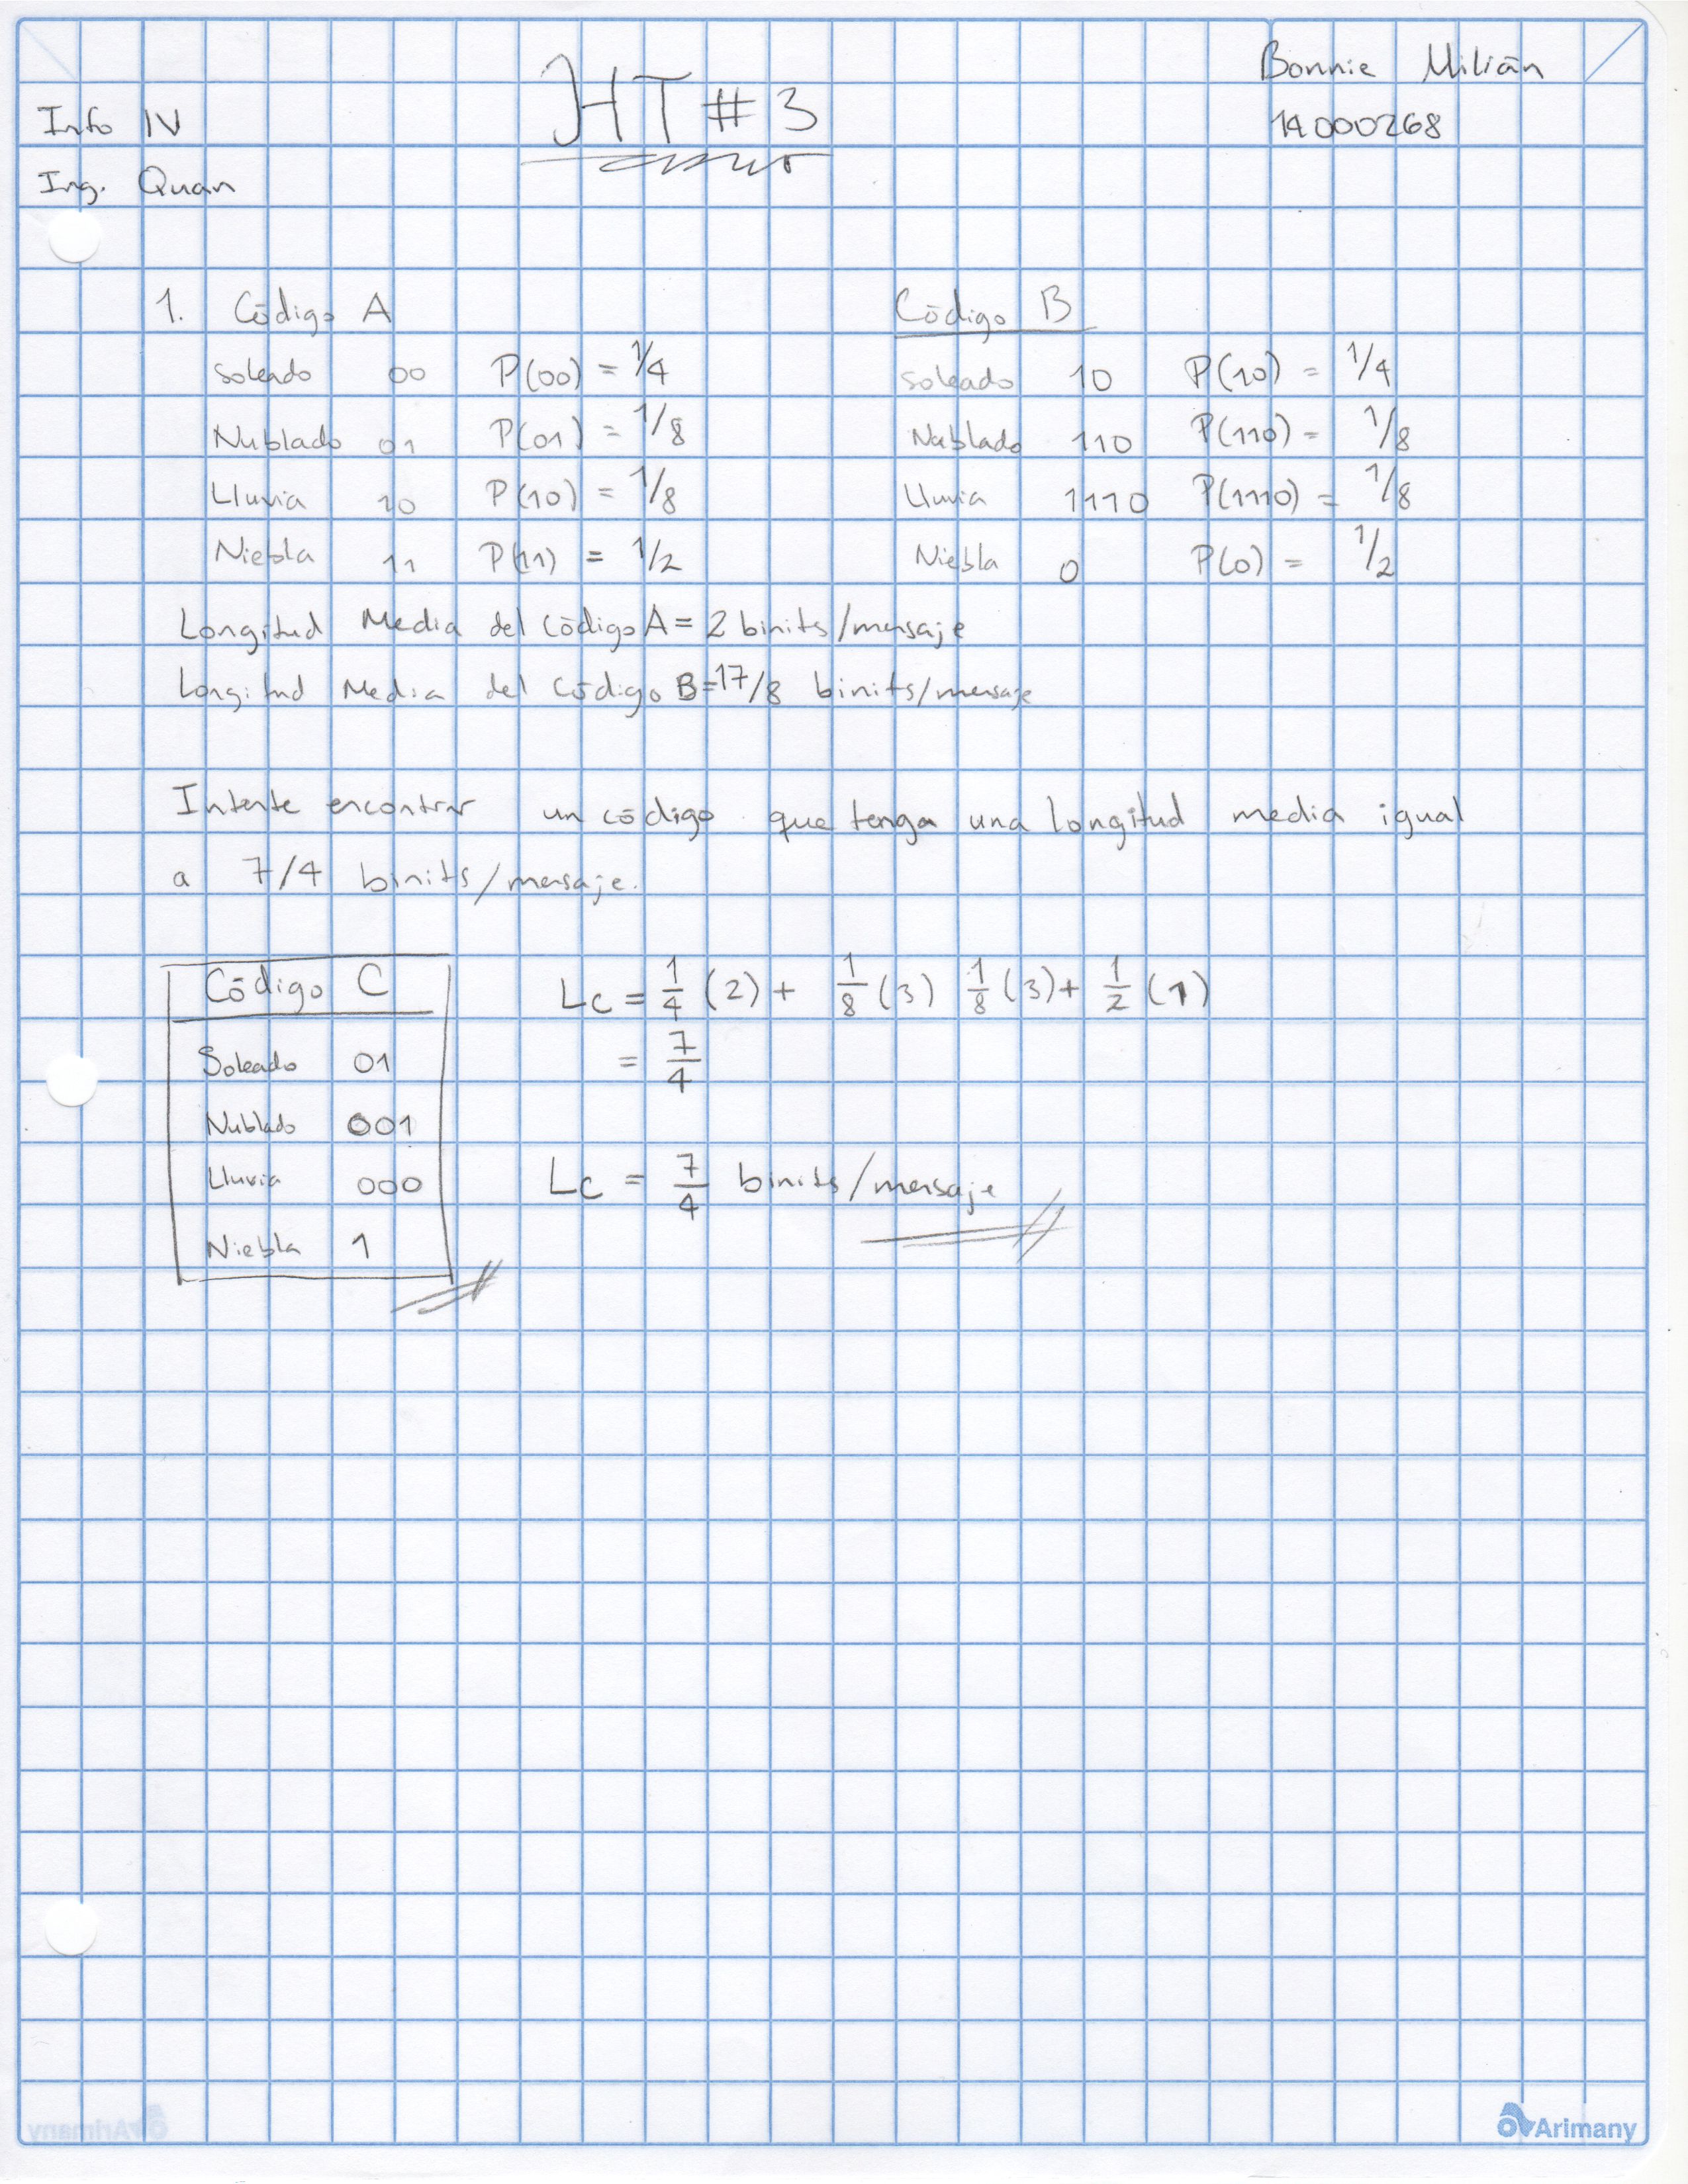 Bonnie Milián
HT #3
14000268
Info IV
Ing. Quan
1. Código A
soleado 00 P(00) = 1/4
Nublado 01 P(01) = 1/8
Lluvia 10 P(10) = 1/8
Niebla 11 P(11) = 1/2
Código B
soleado 10 P(10) = 1/4
Nublado 110 P(110) = 1/8
Lluvia 1110 P(1110) = 1/8
Niebla 0 P(0) = 1/2
Longitud Media del código A = 2 binits/mensaje
Longitud Media del Código B = 17/8 binits/mensaje
Intente encontrar un código que tenga una longitud media igual
a 7/4 binits/mensaje.
Código C
Soleado 01
Nublado 001
Lluvia 000
Niebla 1
Lc = 1/4 (2) + 1/8 (3) 1/8 (3) + 1/2 (1)
= 7/4
Lc = 7/4 binits/mensaje
Arimany